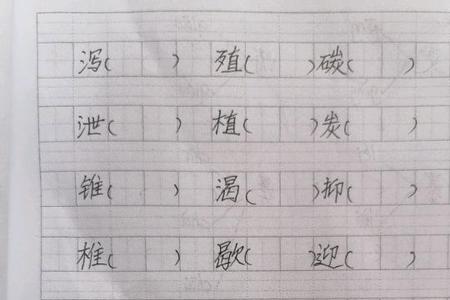 泻( ) 殖( ) 碳( )
泄( ) 植( ) 炭( )
锥( ) 渴( ) 抑( )
椎( ) 歇( ) 迎( )